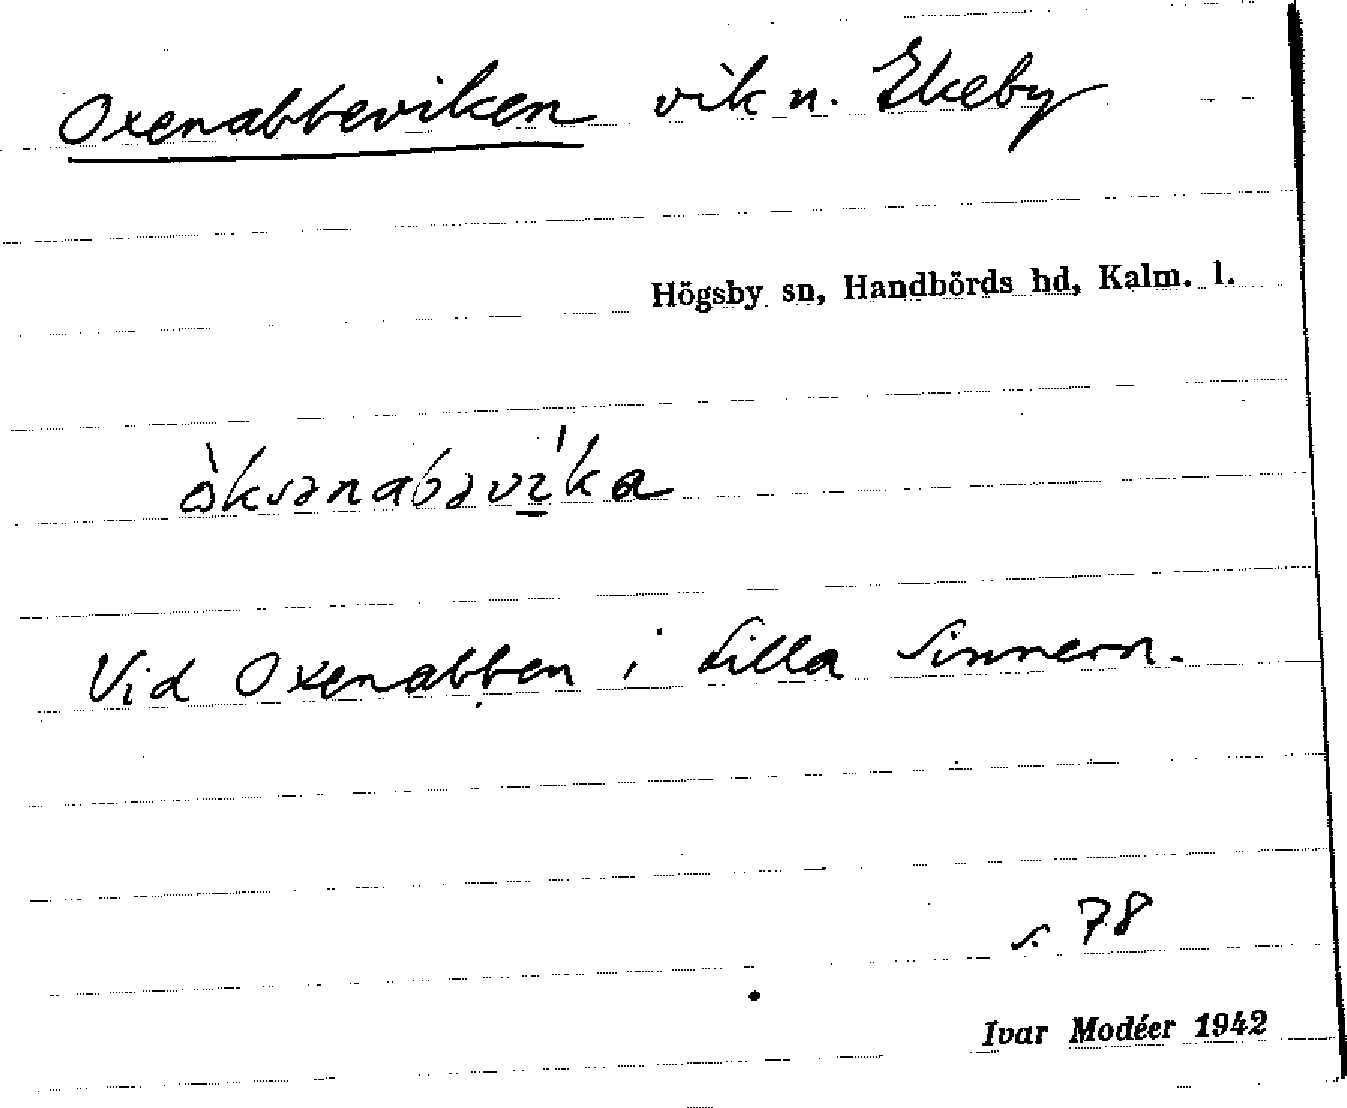 Oxenabbeviken vik n. Ekeby
Högsby sn, Handbörds hd, Kalm. l.
ò̀ksənabəvi̲ˈka
Vid Oxenabben i Lilla Sinnern.
s. 78
Ivar Modéer 1942